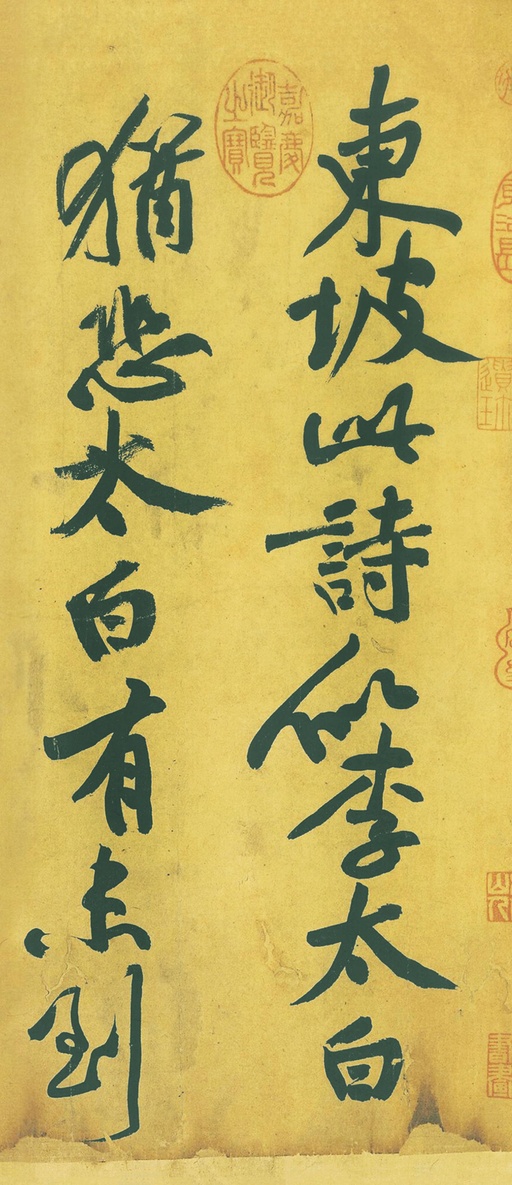 東坡此詩似李太白
嘉慶
御覽
之寶
猶恐太白有未到